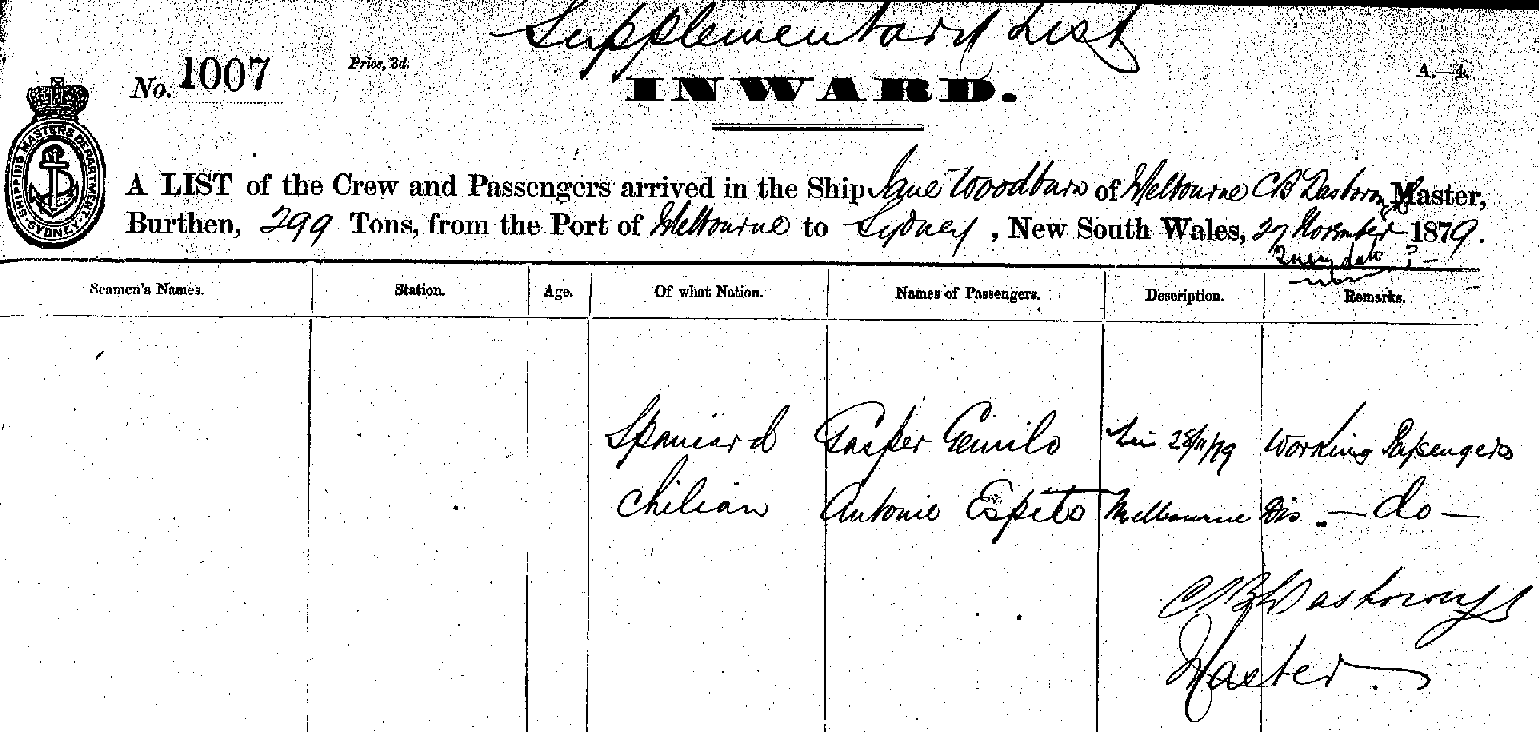 Supplementary List
No. 1007 Price, 3d. INWARD. A.—4.
SHIPPING MASTERS DEPARTMENT. SYDNEY
A LIST of the Crew and Passengers arrived in the Ship Jane Woodburn of Melbourne C B Master,
Burthen, 299 Tons, from the Port of Melbourne to Sydney, New South Wales, 27 November 1879.
Query date ?
Seamen's Names. Station. Age. Of what Nation. Names of Passengers. Description. Remarks.
Spaniard Gasper 28/11/79 Working Passengers
Chilian Antonio Espito Melbourne Dis. — do —
C B
Master.